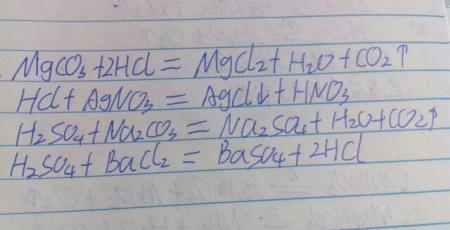 MgCO₃+2HCl=MgCl₂+H₂O+CO₂↑
HCl+AgNO₃=AgCl↓+HNO₃
H₂SO₄+Na₂CO₃=Na₂SO₄+H₂O+CO₂↑
H₂SO₄+BaCl₂=BaSO₄+2HCl